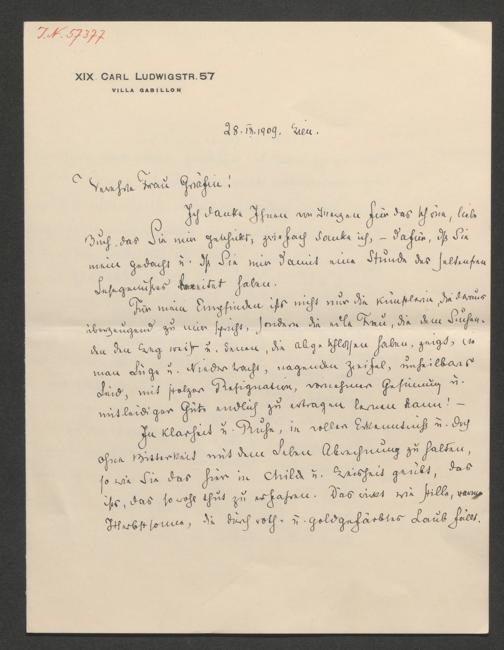 J.N. 57377
XIX. CARL LUDWIGSTR. 57
VILLA GABILLON
28. 1909. Wien.
Verehrte Frau Gräfin!
Ich danke Ihnen von Herzen für das schöne, liebe
Buch, das Sie mir geschickt, zweifach danke ich, – dafür, dß Sie
mein gedacht u. dß Sie mir damit eine Stunde des seltensten
Lesegenußes bereitet haben.
Für mein Empfinden ists nicht nur die Künstlerin, die daraus
überzeugend zu mir spricht, sondern die edle Frau, die dem Suchen-
den den Weg weist u. denen, die abgeschlossen haben, zeigt, wie
man Lüge u. Niedertracht, nagenden Zweifel, unheilbares
Leid, mit stolzer Resignation, vornehmer Gesinnung u.
mitleidiger Güte endlich zu ertragen lernen kann! –
In Klarheit u. Ruhe, in voller Erkenntniß u. doch
ohne Bitterkeit mit dem Leben Abrechnung zu halten,
so wie Sie das hier in Milde u. Weisheit geübt, das
ists, das so wohl thut zu erfahren. Das wirkt wie stille, warme
Herbstsonne, die durch roth- u. goldgefärbtes Laub fällt.